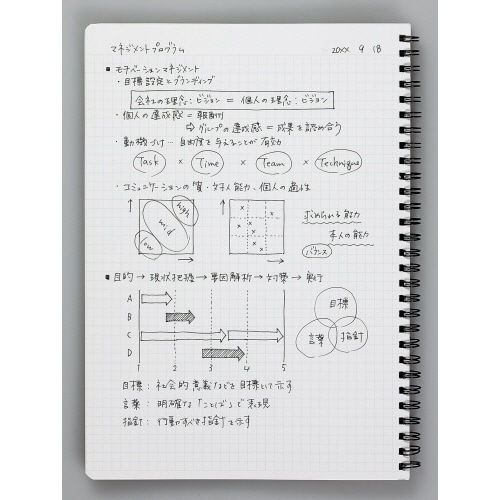 マネジメントプログラム 20XX 9 18
■ モチベーションマネジメント
・目標設定とブランディング
会社の理念:ビジョン = 個人の理念:ビジョン
・個人の達成感 = 報酬
⇨ グループの達成感 = 成果を認め合う
・動機づけ… 自由度を与えることが有効
Task × Time × Team × Technique
・コミュニケーションの質・対人能力、個人の適性
high
mid
low
求められる能力
本人の能力
バランス
■ 目的 → 現状把握 → 要因解析 → 対策 → 実行
A
B
C
D
1 2 3 4 5
目標
言葉 指針
目標: 社会的意義などを目標として示す
言葉: 明確な「ことば」で表現
指針: 行動すべき指針を示す